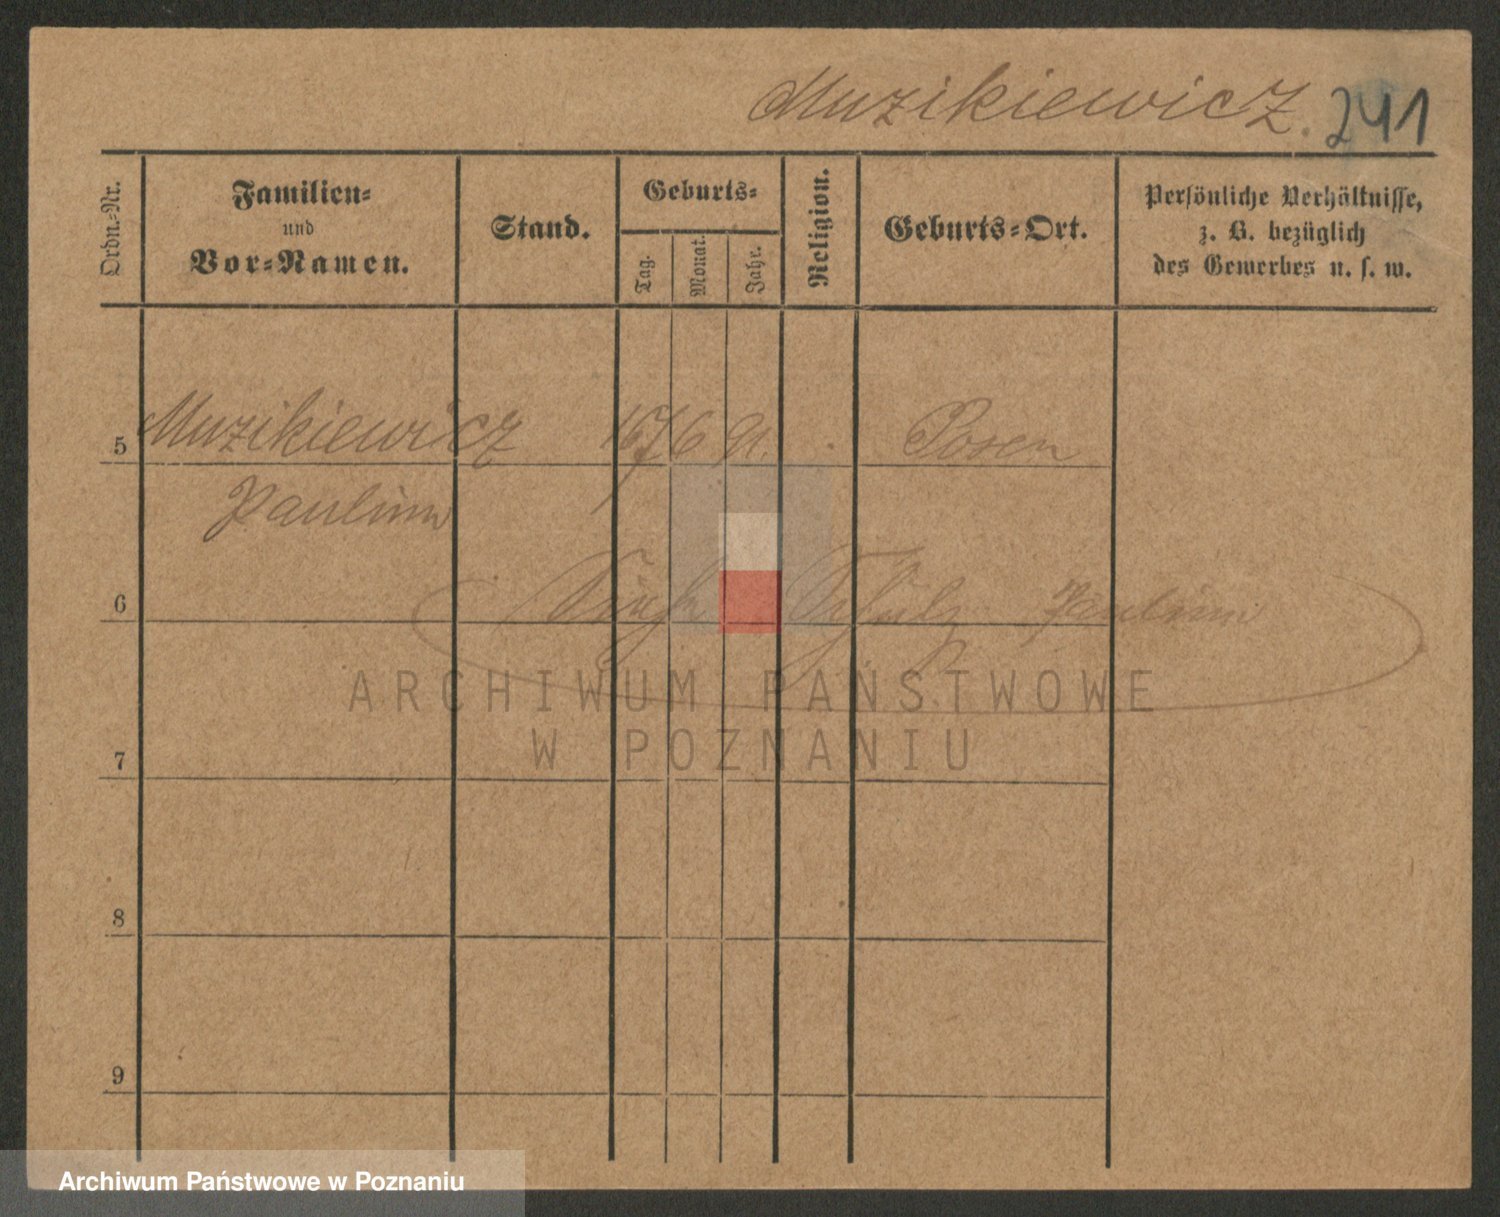 Muzikiewicz. 241
Ordn.-Nr.
Familien-
und
Vor-Namen.
Stand.
Geburts-
Tag.
Monat.
Jahr.
Religion.
Geburts-Ort.
Persönliche Verhältnisse,
z. B. bezüglich
des Gewerbes u. s. w.
5 Muzikiewicz 6 91. Posen
Paulina
6 Siehe Schulz Paulina
ARCHIWUM PAŃSTWOWE
W POZNANIU
7
8
9
Archiwum Państwowe w Poznaniu